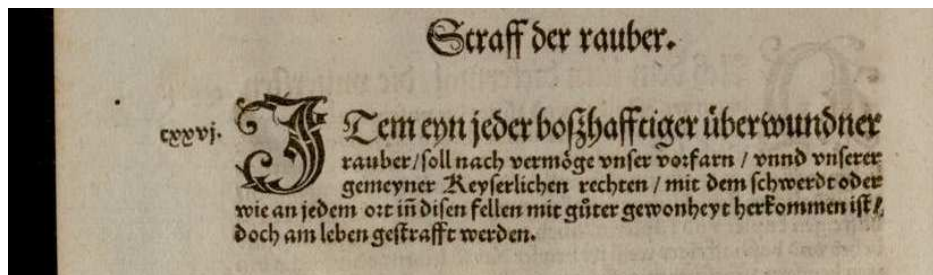 Straff der rauber.
cxxvj. ITem eyn jeder boßhafftiger überwundner
rauber / soll nach vermöge vnser vorfarn / vnnd vnserer
gemeyner Keyserlichen rechten / mit dem schwerdt oder
wie an jedem ort iñ disen fellen mit gůter gewonheyt herkommen ist /
doch am leben gestrafft werden.